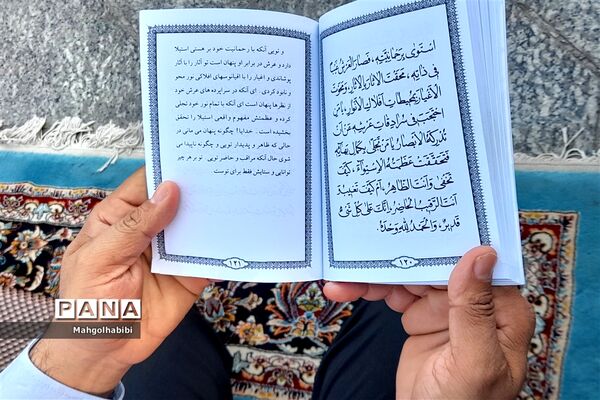 اِسْتَوىٰ بِرَحْمانِيَّتِهِ، فَصارَ الْعَرْشُ غَيْباً
فى ذاتِهِ، مَحَقْتَ الْآثارَ بِالْآثارِ، وَمَحَوْتَ
الْأَغْيارَ بِمُحيطاتِ أَفْلاكِ الْأَنْوارِ، يا مَنِ
احْتَجَبَ فى سُرادِقاتِ عَرْشِهِ عَنْ أَنْ
تُدْرِكَهُ الْأَبْصارُ، يا مَنْ تَجَلّىٰ بِكَمالِ بَهائِهِ،
فَتَحَقَّقَتْ عَظَمَتُهُ الْاِسْتِواءَ، كَيْفَ
تَخْفىٰ وَأَنْتَ الظّاهِرُ، أَمْ كَيْفَ تَغيبُ وَ
أَنْتَ الرَّقيبُ الْحاضِرُ، إِنَّكَ عَلىٰ كُلِّ شَىْءٍ
قَديرٌ، وَالْحَمْدُ لِلّٰهِ وَحْدَهُ.
١٢٠
و تویی آنکه با رحمانیت خود بر هستی استیلا
دارد و عرش در برابر او پنهان است تو آثار را با آثار
پوشاندی و اغیار را با اقیانوسهای افلاکی نور محو
و نابود کردی . ای آنکه در سراپرده های عرش خود
از نظرها پنهان است ای آنکه با تمام نور خود تجلی
کرده و عظمتش مفهوم واقعی استیلا را تحقق
بخشیده است . خدایا! چگونه پنهان می مانی در
حالی که ظاهر و پدیدار تویی و چگونه ناپیدا می
شوی حال آنکه مراقب و حاضر تویی تو بر هر چیز
توانایی و ستایش فقط برای توست
١٢١
PANA
Mahgolhabibi